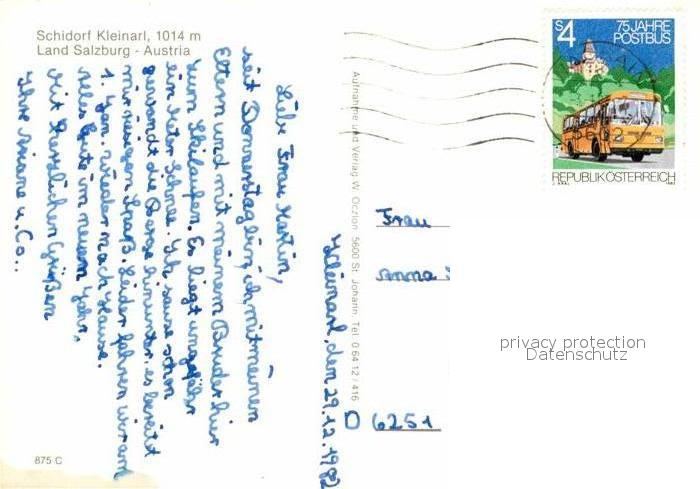 Schidorf Kleinarl, 1014 m
Land Salzburg - Austria
Kleinarl, den 29.12.1982
Liebe Frau Martin,
seit Donnerstag bin ich mit meinen
Eltern und mit meinem Bruder hier
zum Skilaufen. Es liegt ungefähr
ein Meter Schnee. Ich sause schon
gewandt die Berge hinunter. es bereitet
mir riesigen Spaß. Leider fahren wir am
1. Jan. wieder nach Hause.
Alles Gute im neuen Jahr,
mit herzlichen Grüßen
Ihre Ariane u. Co..
Aufnahme und Verlag W. Oczlon, 5600 St. Johann, Tel. 0 64 12 / 416
S4
75 JAHRE
POSTBUS
REPUBLIK ÖSTERREICH
Frau
Anna
D 6251
privacy protection
Datenschutz
875 C